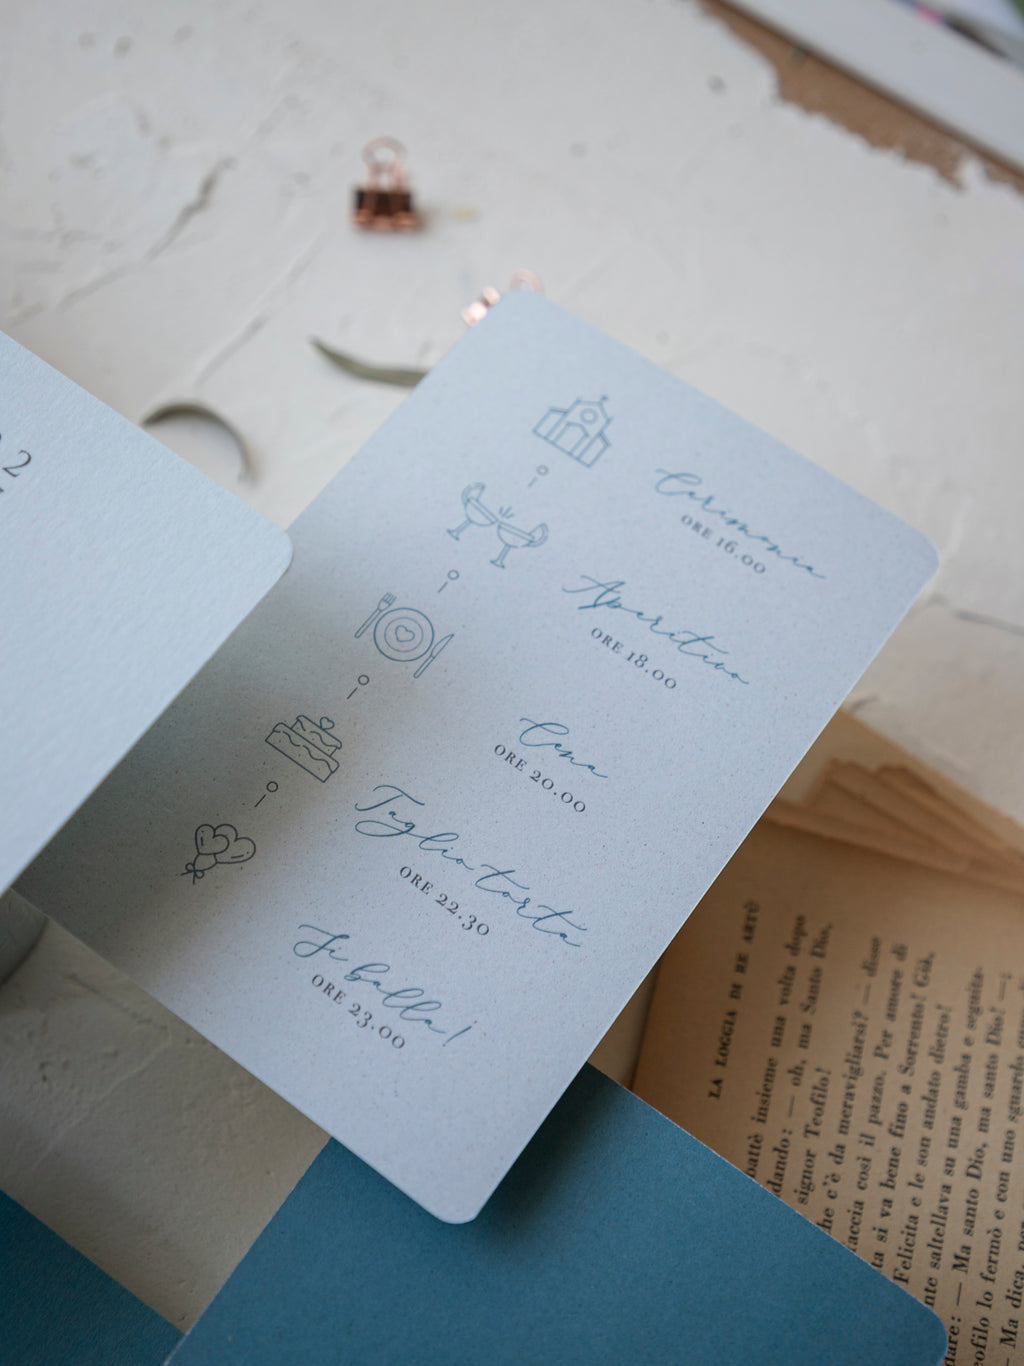 2
Cerimonia
ORE 16.00
Aperitivo
ORE 18.00
Cena
ORE 20.00
Taglio torta
ORE 22.30
Si balla!
ORE 23.00
LA LOGGIA DI RE ARTÙ
battè insieme una volta dopo
dando: — oh, ma Santo Dio,
signor Teofilo!
he c'è da meravigliarsi? — disse
faccia così il pazzo. Per amore di
ta si va bene fino a Sorrento! Già,
Felicita e le son andato dietro!
nte saltellava su una gamba e seguita-
lare: — Ma santo Dio, ma santo Dio! —;
ofilo lo fermò e con uno sguardo
— Ma dica, per